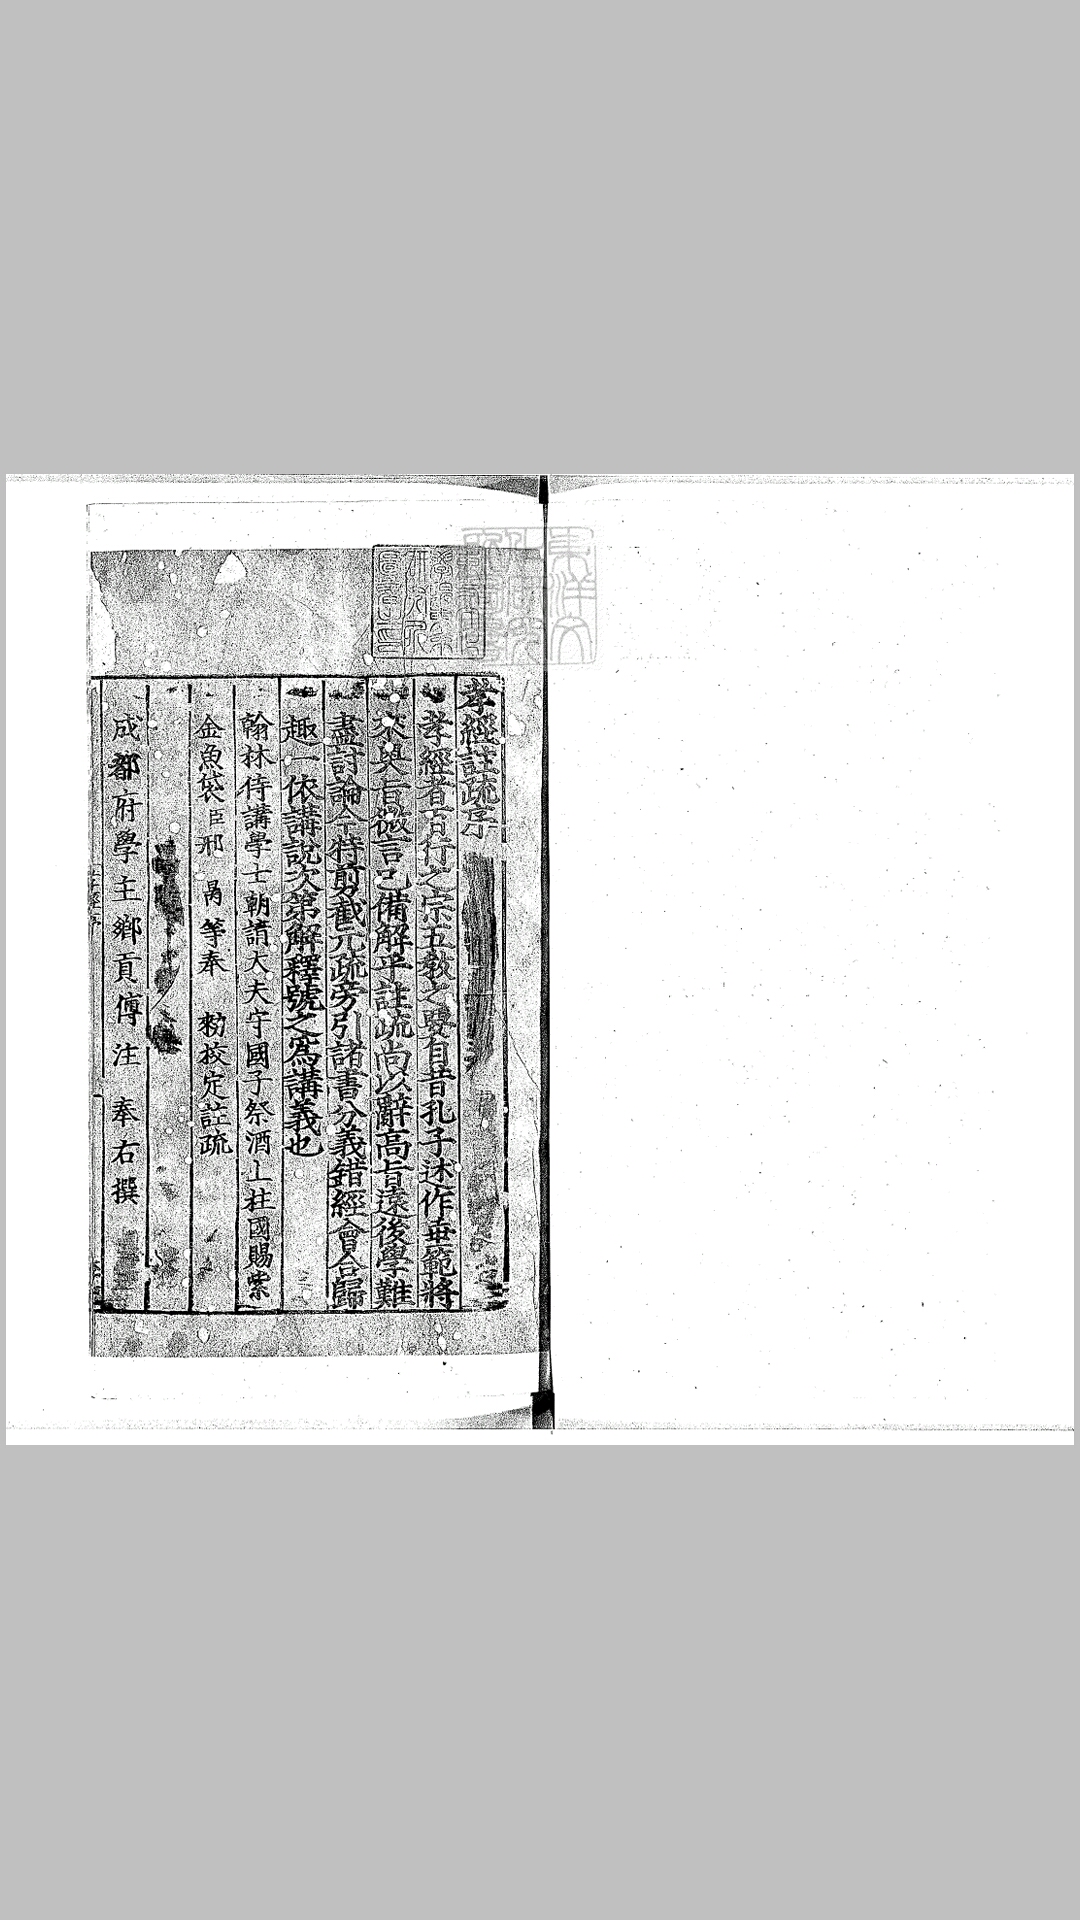 孝經註疏序
孝經者百行之宗五教之要自昔孔子述作垂範將
來奧旨微言已備解乎註疏尚以辭高旨遠後學難
盡討論今特剪截元疏旁引諸書分義錯經會合歸
趣一依講說次第解釋號之爲講義也
翰林侍講學士朝請大夫守國子祭酒上柱國賜紫
金魚袋臣邢昺等奉 勑挍定註疏
成都府學主鄉貢傅注 奉右撰